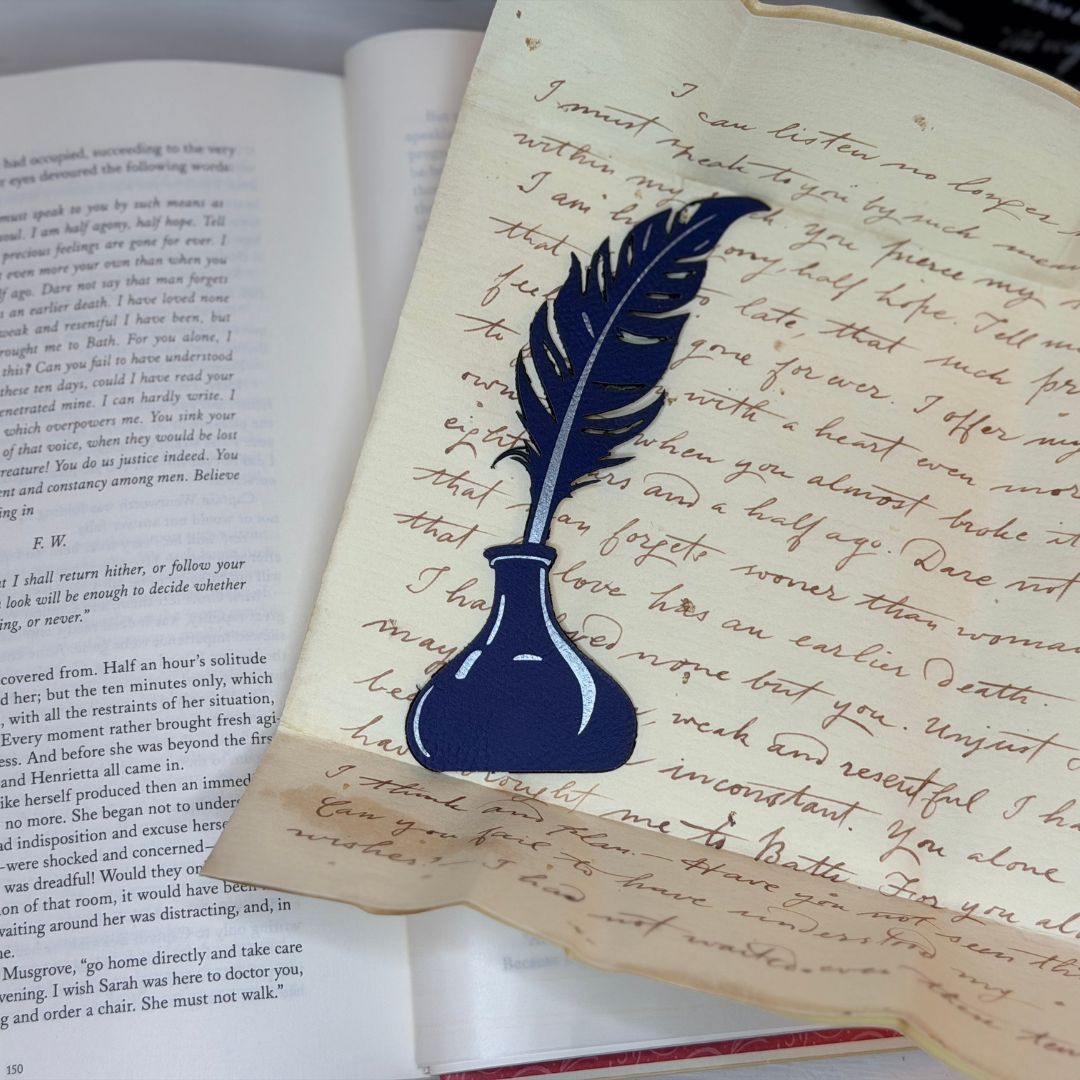 had occupied, succeeding to the very
eyes devoured the following words:
must speak to you by such means as
soul. I am half agony, half hope. Tell
precious feelings are gone for ever. I
even more your own than when you
ago. Dare not say that man forgets
an earlier death. I have loved none
weak and resentful I have been, but
rought me to Bath. For you alone, I
this? Can you fail to have understood
these ten days, could I have read your
enetrated mine. I can hardly write. I
which overpowers me. You sink your
of that voice, when they would be lost
reature! You do us justice indeed. You
ent and constancy among men. Believe
ing in
F. W.
t I shall return hither, or follow your
look will be enough to decide whether
ing, or never.”
covered from. Half an hour’s solitude
d her; but the ten minutes only, which
, with all the restraints of her situation,
Every moment rather brought fresh agi-
ess. And before she was beyond the firs
and Henrietta all came in.
ike herself produced then an immed
no more. She began not to unders
ad indisposition and excuse herse
—were shocked and concerned—
was dreadful! Would they on
ion of that room, it would have been
waiting around her was distracting, and, in
me.
Musgrove, “go home directly and take care
vening. I wish Sarah was here to doctor you,
g and order a chair. She must not walk.”
150
I can listen no longer
I must speak to you by such means
within my You pierce my
I am half hope. Tell me
that late, that such pr
gone for ever. I offer my
to with a heart even mor
own when you almost broke it
eight and a half ago. Dare not
that forgets sooner than woman
that love has an earlier death.
I ha none but you. Unjust
may weak and resentful I ha
be inconstant. You alone
hav brought me to Bath. For you al
I think and plan — Have you not seen th
Can you fail to have understood my
wishes? I had not waited even ten